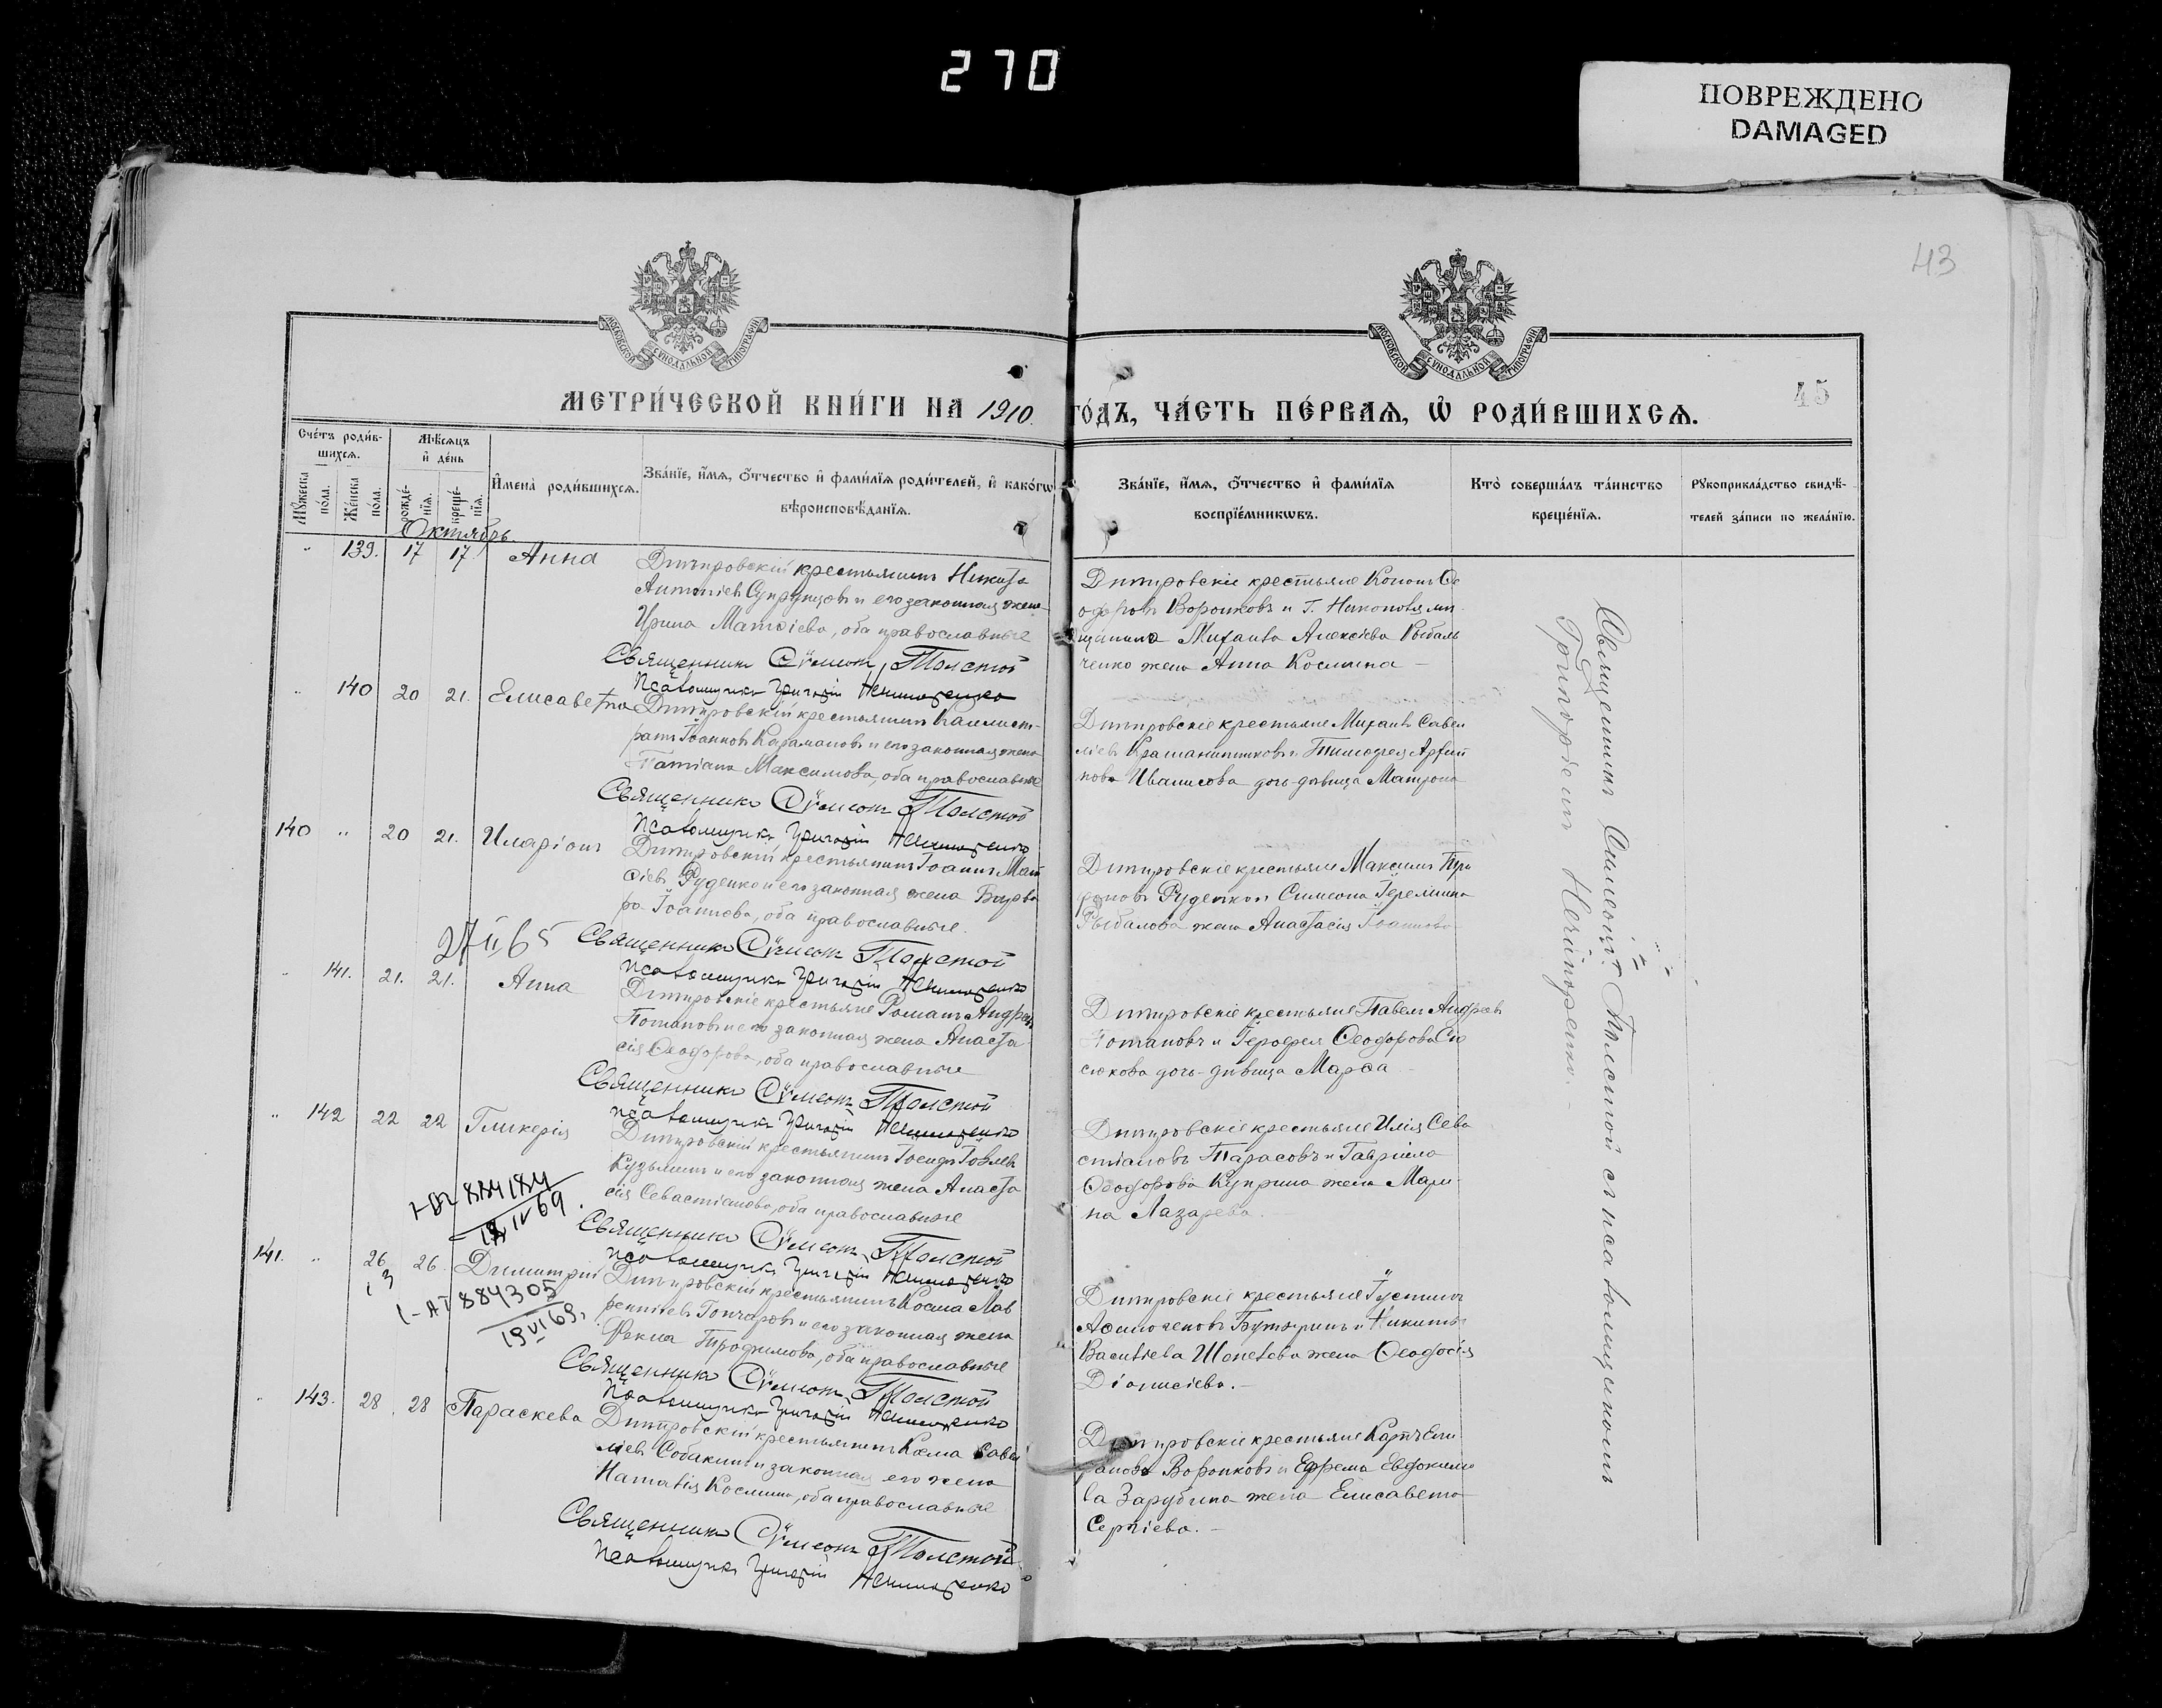 270
ПОВРЕЖДЕНО
DAMAGED
43
45
МОСКОВСКОЙ СѴНОДАЛЬНОЙ ТИПОГРАФІИ
МОСКОВСКОЙ СѴНОДАЛЬНОЙ ТИПОГРАФІИ
МЕТРИ́ЧЕСКОЙ КНИ́ГИ НА 1910
ГО́ДЪ, ЧА́СТЬ ПЕ́РВАѦ, Ѡ҆ РОДИ́ВШИХСѦ.
Сче́тъ роди́в-
шихсѧ.
Мꙋ́жеска по́ла.
Же́нска по́ла.
Мѣ́сѧцъ
и҆ де́нь
рожде́-
нїѧ.
креще́-
нїѧ.
И҆мена̀ роди́вшихсѧ.
Зва́нїе, и҆́мѧ, ѻ҆́тчество и҆ фами́лїѧ роди́телей, и҆ како́гѡ
вѣроисповѣ́данїѧ.
Зва́нїе, и҆́мѧ, ѻ҆́тчество и҆ фами́лїѧ
воспрїе́мникѡвъ.
Кто̀ соверша́лъ та́инство
креще́нїѧ.
Рꙋкоприкла́дство свидѣ́-
телей за́писи по жела́нїю.
Октябрь.
" 139. 17 17. Анна
Дмитровскій крестьянинъ Никита
Антоніевъ Супрунцовъ и его законная жена
Ирина Матѳіева, оба православные
Священникъ Сѵмеонъ Толстой
Псаломщикъ Григорій Нечипоренко
Дмитровскіе крестьяне Кононъ Ѳе
одоровъ Воронковъ и
щанина Михаила Алексіева Рыбаль
ченко жена Анна Космина —
" 140 20 21. Елисавета
Дмитровскій крестьянинъ Каллист-
ратъ Іоанновъ Карамановъ и его законная жена
Татіана Максимова, оба православные
Священникъ Сѵмеонъ Толстой
Псаломщикъ Григорій Нечипоренко
Дмитровскіе крестьяне Михаилъ Савел
ліевъ и Тимоѳея
дочь-дѣвица Матрона
140 " 20 21. Иларіонъ
Дмитровскій крестьянинъ Іоаннъ Мат
ѳіевъ Руденко и его законная жена Варва
ра Іоаннова, оба православные.
Священникъ Сѵмеонъ Толстой
Псаломщикъ Григорій Нечипоренко
Дмитровскіе крестьяне Максимъ Три
фоновъ Руденко и Симеона Іереміина
Рыбалова жена Анастасія Іоаннова
27 II 65
" 141. 21. 21. Анна
Дмитровскіе крестьяне Романъ Андреевъ
Потаповъ и его законная жена Анаста
сія Ѳеодорова, оба православные
Священникъ Сѵмеонъ Толстой
Псаломщикъ Григорій Нечипоренко
Дмитровскіе крестьяне Павелъ Андреевъ
Потаповъ и Іероѳея Ѳеодорова Сю
сюкова дочь-дѣвица Марѳа
" 142 22 22 Гликерія
Дмитровскій крестьянинъ Іосифъ Іовлевъ
Кузьминъ и его законная жена Анаста
сія Севастіанова, оба православные
Священникъ Сѵмеонъ Толстой
Псаломщикъ Григорій Нечипоренко
Дмитровскіе крестьяне Илія Сева
стіановъ Тарасовъ и Гавріила
Ѳеодорова Куприна жена Мари
на Лазарева. —
884184
18 IV 69.
141. " 26 26. Димитрій
Дмитровскій крестьянинъ Косма Лав
рентіевъ Гончаровъ и его законная жена
Ѳекла Трофимова, оба православные
Священникъ Сѵмеонъ Толстой
Псаломщикъ Григорій Нечипоренко
Дмитровскіе крестьяне Іустинъ
и Никиты
Василіева Шепелева жена Ѳеодосія
Діонисіева. —
I-АГ 884305
19 VI 69.
" 143. 28 28 Параскева
Дмитровскій крестьянинъ Косма Савел
ліевъ Собакинъ и законная его жена
Наталія Космина, оба православные
Священникъ Сѵмеонъ Толстой
Псаломщикъ Григорій Нечипоренко
Дмитровскіе крестьяне Карпъ
Воронковъ и Ефрема Евдокимо
ва Зарубина жена Елисавета
Сергіева. —
Священникъ Симеонъ Толстой съ псаломщикомъ
Григоріемъ Нечипоренко. —